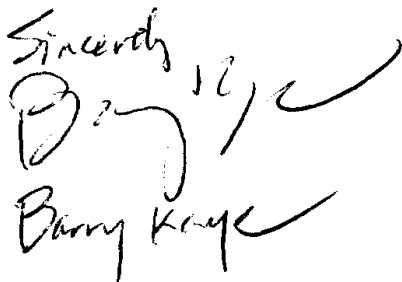 Sincerely
Barry Kaye
Barry Kaye